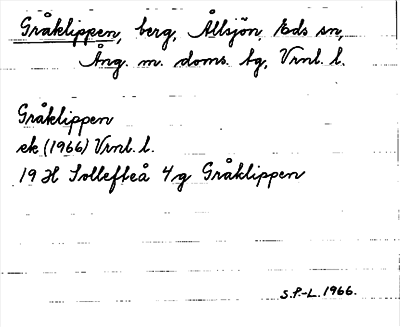 Gråklippen, berg, Ållsjön, Eds sn,
Ång. m. doms. tg, Vrnl. l.
Gråklippen
ek (1966) Vrnl. l.
19 H Sollefteå 4g Gråklippen
S.P.-L. 1966.